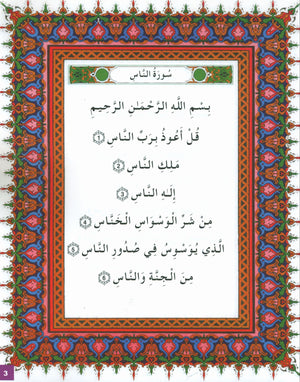 سُورَةُ النَّاسِ
بِسْمِ اللَّهِ الرَّحْمَـٰنِ الرَّحِيمِ
قُلْ أَعُوذُ بِرَبِّ النَّاسِ ١
مَلِكِ النَّاسِ ٢
إِلَـٰهِ النَّاسِ ٣
مِنْ شَرِّ الْوَسْوَاسِ الْخَنَّاسِ ٤
الَّذِي يُوَسْوِسُ فِي صُدُورِ النَّاسِ ٥
مِنَ الْجِنَّةِ وَالنَّاسِ ٦
3